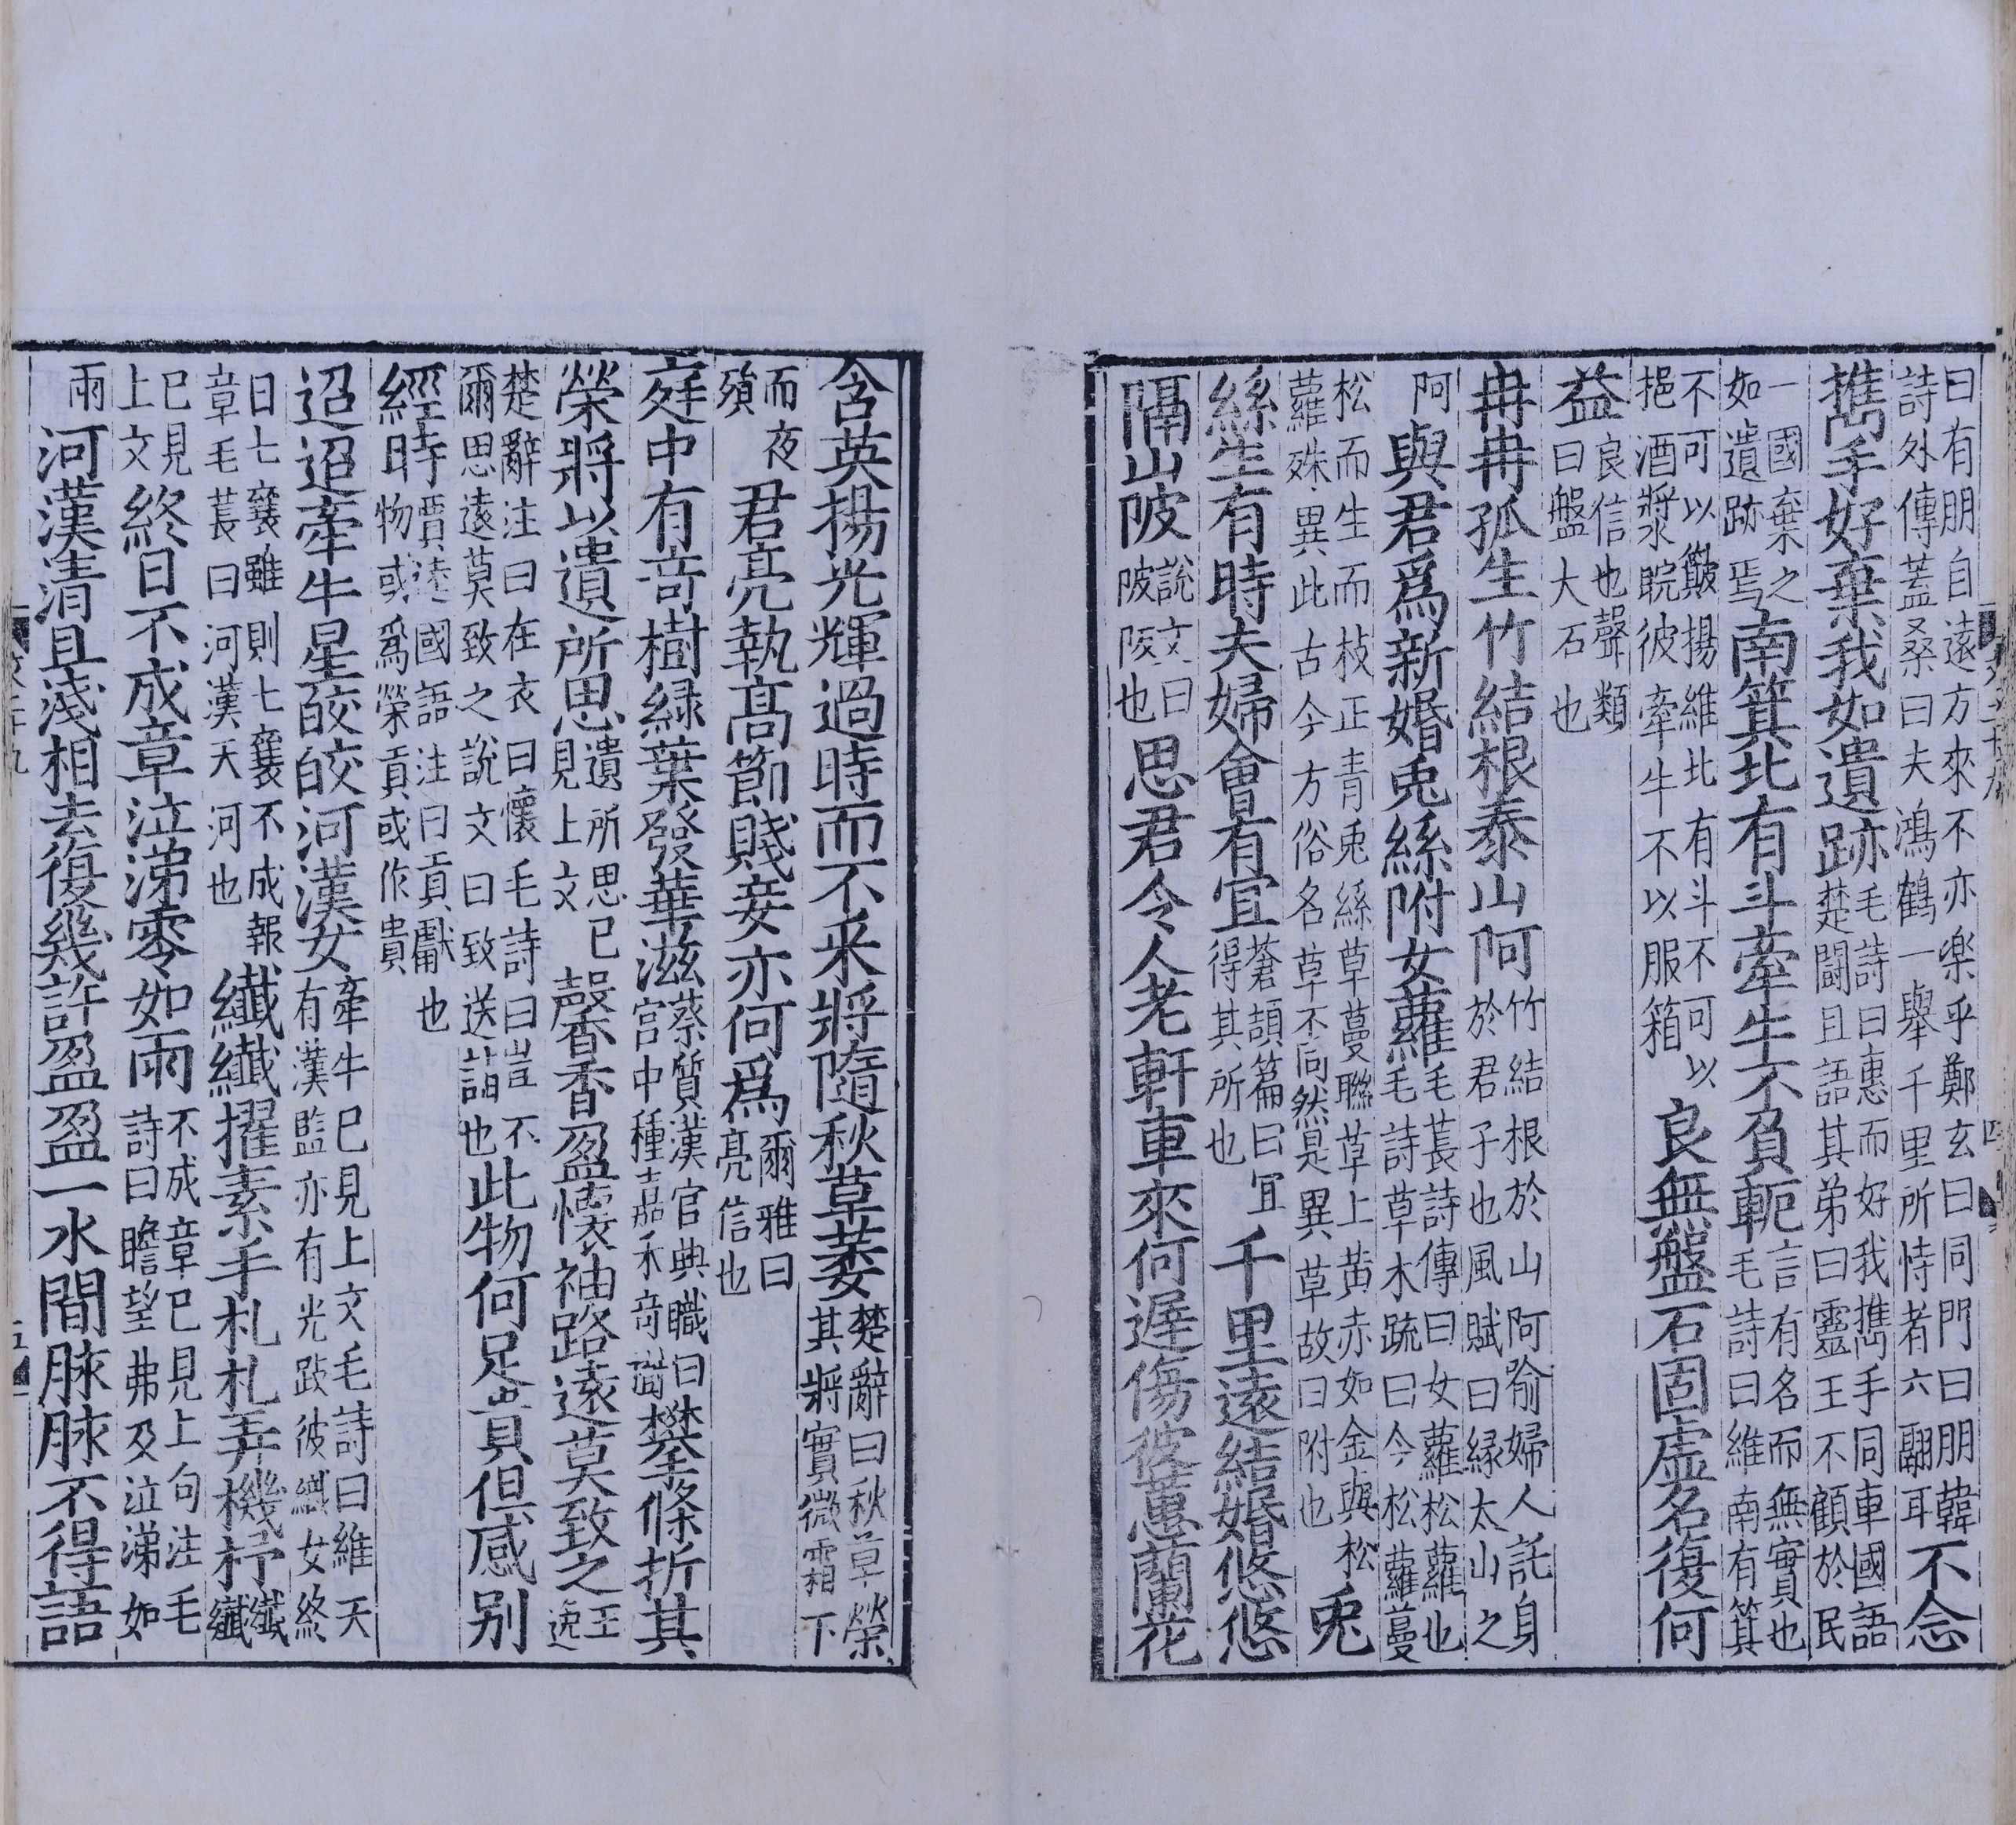 曰有朋自遠方來不亦樂乎鄭玄曰同門曰朋韓詩外傳蓋桑曰夫鴻鶴一舉千里所恃者六翮耳不念
攜手好棄我如遺跡毛詩曰惠而好我攜手同車國語楚鬭且語其弟曰靈王不顧於民
一國棄之如遺跡焉南箕北有斗牽牛不負軛言有名而無實也毛詩曰維南有箕
不可以簸揚維北有斗不可以挹酒漿睆彼牽牛不以服箱良無盤石固虛名復何
益良信也聲類曰盤大石也
冉冉孤生竹結根泰山阿竹結根於山阿喻婦人託身於君子也風賦曰緣太山之
阿與君爲新婚兎絲附女蘿毛萇詩傳曰女蘿松蘿也毛詩草木疏曰今松蘿蔓
松而生而枝正青兎絲草蔓聯草上黃赤如金與松蘿殊異此古今方俗名草不同然是異草故曰附也兎
絲生有時夫婦會有宜蒼頡篇曰宜得其所也千里遠結婚悠悠
隔山陂說文曰陂阪也思君令人老軒車來何遲傷彼蕙蘭花
含英揚光輝過時而不采將隨秋草萎楚辭曰秋草榮其將實微霜下
而夜殞君亮執高節賤妾亦何爲爾雅曰亮信也
庭中有奇樹綠葉發華滋蔡質漢官典職曰宮中種嘉禾奇樹攀條折其
榮將以遺所思遺所思已見上文馨香盈懷袖路遠莫致之王逸
楚辭注曰在衣曰懷毛詩曰豈不爾思遠莫致之說文曰致送詣也此物何足貴但感別
經時賈逵國語注曰貢獻也物或爲榮貢或作貴
迢迢牽牛星皎皎河漢女牽牛已見上文毛詩曰維天有漢監亦有光跂彼織女終
日七襄雖則七襄不成報章毛萇曰河漢天河也纖纖擢素手札札弄機杼纖纖
已見上文終日不成章泣涕零如雨不成章已見上句注毛詩曰瞻望弗及泣涕如
雨河漢清且淺相去復幾許盈盈一水間脉脉不得語